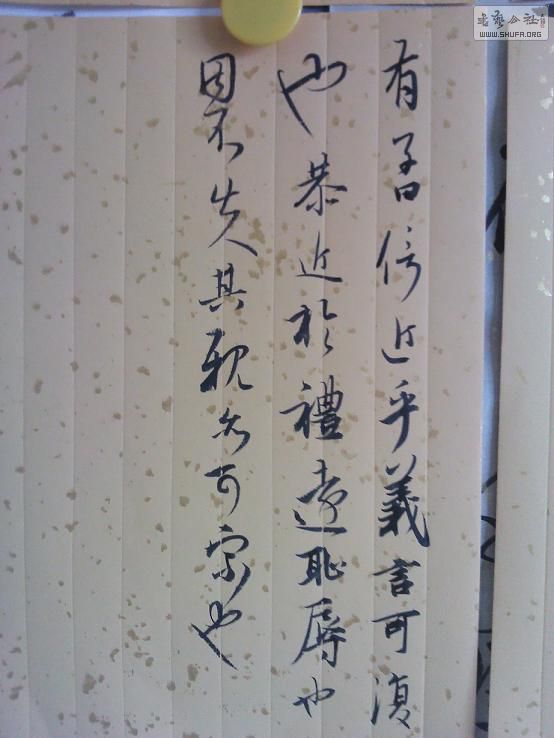 有子曰信近乎義言可復
也恭近於禮遠恥辱也
因不失其親亦可宗也
書藝公社
WWW.SHUFA.ORG